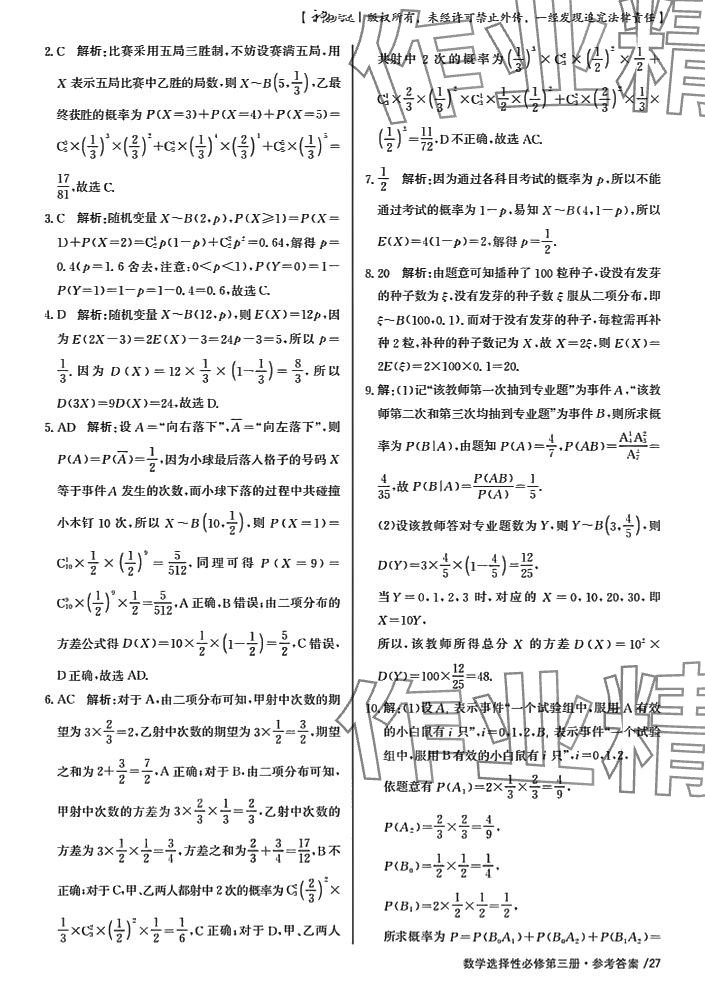 【 | 版权所有，未经许可禁止外传，一经发现追究法律责任】
2. C 解析：比赛采用五局三胜制，不妨设赛满五局，用
X 表示五局比赛中乙胜的局数，则 X～B(5，1/3)，乙最
终获胜的概率为 P(X＝3)＋P(X＝4)＋P(X＝5)＝
C₅³×(1/3)³×(2/3)²＋C₅⁴×(1/3)⁴×(2/3)¹＋C₅⁵×(1/3)⁵＝
17/81，故选 C.
3. C 解析：随机变量 X～B(2，p)，P(X≥1)＝P(X＝
1)＋P(X＝2)＝C₂¹p(1－p)＋C₂²p²＝0.64，解得 p＝
0.4(p＝1.6 舍去，注意：0＜p＜1)，P(Y＝0)＝1－
P(Y＝1)＝1－p＝1－0.4＝0.6，故选 C.
4. D 解析：随机变量 X～B(12，p)，则 E(X)＝12p，因
为 E(2X－3)＝2E(X)－3＝24p－3＝5，所以 p＝
1/3. 因为 D(X)＝12×1/3×(1－1/3)＝8/3，所以
D(3X)＝9D(X)＝24，故选 D.
5. AD 解析：设 A＝“向右落下”，A̅＝“向左落下”，则
P(A)＝P(A̅)＝1/2，因为小球最后落入格子的号码 X
等于事件 A 发生的次数，而小球下落的过程中共碰撞
小木钉 10 次，所以 X～B(10，1/2)，则 P(X＝1)＝
C₁₀¹×1/2×(1/2)⁹＝5/512，同理可得 P(X＝9)＝
C₁₀⁹×(1/2)⁹×1/2＝5/512，A 正确，B 错误；由二项分布的
方差公式得 D(X)＝10×1/2×(1－1/2)＝5/2，C 错误，
D 正确，故选 AD.
6. AC 解析：对于 A，由二项分布可知，甲射中次数的期
望为 3×2/3＝2，乙射中次数的期望为 3×1/2＝3/2，期望
之和为 2＋3/2＝7/2，A 正确；对于 B，由二项分布可知，
甲射中次数的方差为 3×2/3×1/3＝2/3，乙射中次数的
方差为 3×1/2×1/2＝3/4，方差之和为 2/3＋3/4＝17/12，B 不
正确；对于 C，甲、乙两人都射中 2 次的概率为 C₃²(2/3)²×
1/3×C₃²×(1/2)²×1/2＝1/6，C 正确；对于 D，甲、乙两人
共射中 2 次的概率为 (1/3)³×C₃²×(1/2)²×1/2＋
C₃¹×2/3×(1/3)²×C₃¹×1/2×(1/2)²＋C₃²×(2/3)²×1/3×
(1/2)³＝11/72，D 不正确，故选 AC.
7. 1/2 解析：因为通过各科目考试的概率为 p，所以不能
通过考试的概率为 1－p，易知 X～B(4，1－p)，所以
E(X)＝4(1－p)＝2，解得 p＝1/2.
8. 20 解析：由题意可知播种了 100 粒种子，设没有发芽
的种子数为 ξ，没有发芽的种子数 ξ 服从二项分布，即
ξ～B(100，0.1). 而对于没有发芽的种子，每粒需再补
种 2 粒，补种的种子数记为 X，故 X＝2ξ，则 E(X)＝
2E(ξ)＝2×100×0.1＝20.
9. 解：(1)记“该教师第一次抽到专业题”为事件 A，“该教
师第二次和第三次均抽到专业题”为事件 B，则所求概
率为 P(B|A)，由题知 P(A)＝4/7，P(AB)＝A₄¹A₃²/A₇³＝
4/35，故 P(B|A)＝P(AB)/P(A)＝1/5.
(2)设该教师答对专业题数为 Y，则 Y～B(3，4/5)，则
D(Y)＝3×4/5×(1－4/5)＝12/25，
当 Y＝0，1，2，3 时，对应的 X＝0，10，20，30，即
X＝10Y，
所以，该教师所得总分 X 的方差 D(X)＝10²×
D(Y)＝100×12/25＝48.
10. 解：(1)设 Aᵢ 表示事件“一个试验组中，服用 A 有效
的小白鼠有 i 只”，i＝0，1，2，Bᵢ 表示事件“一个试验
组中，服用 B 有效的小白鼠有 i 只”，i＝0，1，2，
依题意有 P(A₁)＝2×1/3×2/3＝4/9，
P(A₂)＝2/3×2/3＝4/9，
P(B₀)＝1/2×1/2＝1/4，
P(B₁)＝2×1/2×1/2＝1/2，
所求概率为 P＝P(B₀A₁)＋P(B₀A₂)＋P(B₁A₂)＝
作业精
作业精
数学选择性必修第三册・参考答案 /27